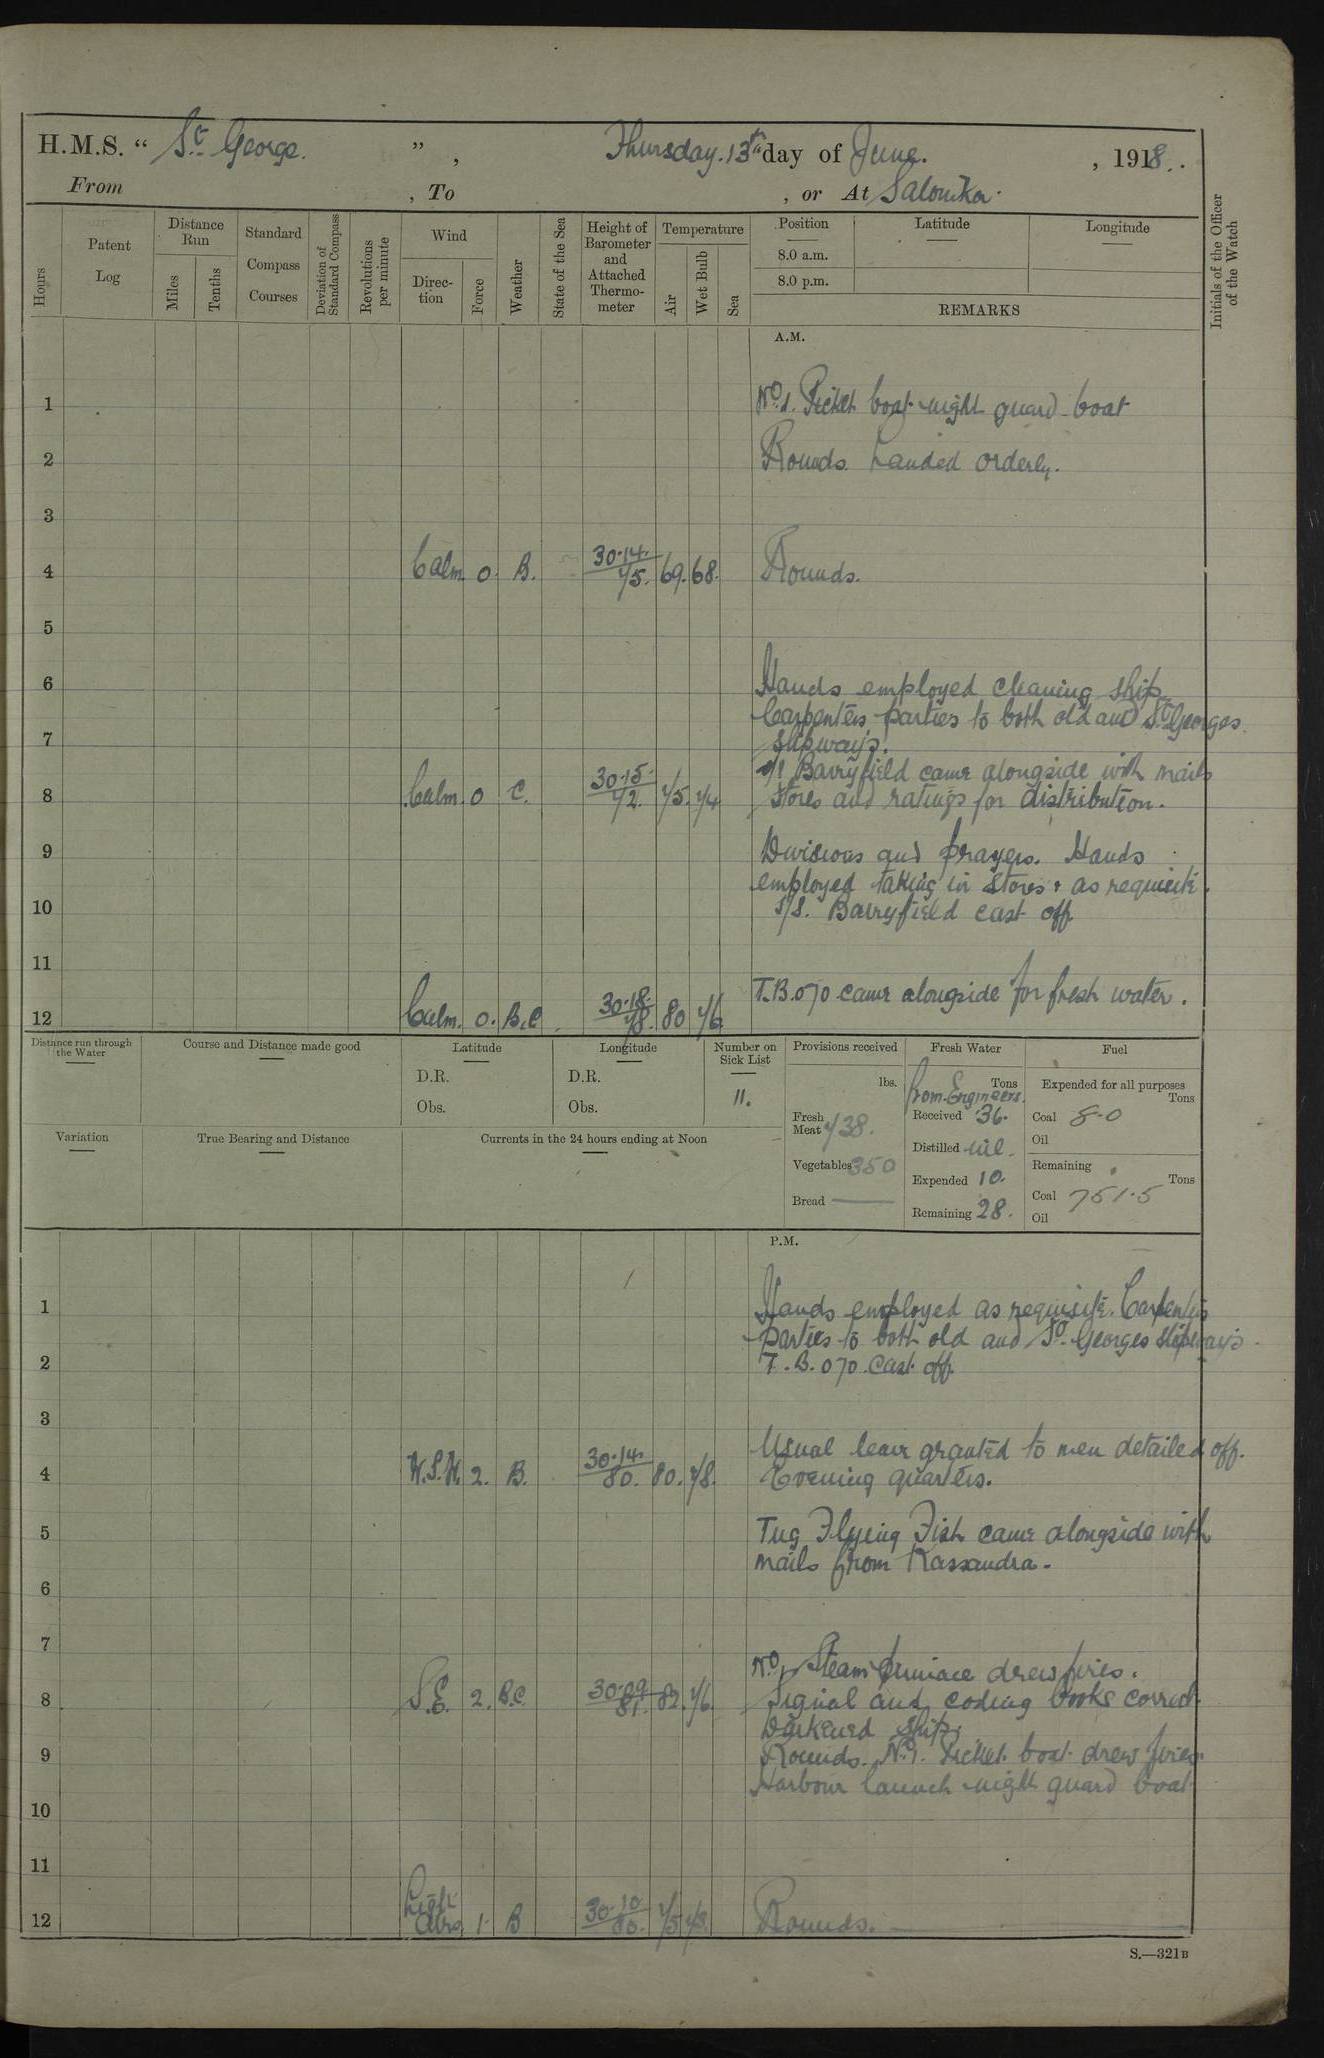 H.M.S. “ St. George. ” , Thursday. 13th day of June. , 1918.
From , To , or At Salonika.
Hours
Patent Log
Distance Run
Miles
Tenths
Standard Compass Courses
Deviation of Standard Compass
Revolutions per minute
Wind
Direction
Force
Weather
State of the Sea
Height of Barometer and Attached Thermometer
Temperature
Air
Wet Bulb
Sea
Position
Latitude
Longitude
8.0 a.m.
8.0 p.m.
REMARKS
Initials of the Officer of the Watch
A.M.
1 No. 1. Picket boat night guard boat
2 Rounds. Landed orderly.
3
4 Calm. 0. B. 30.14. 75. 69. 68. Rounds.
5
6 Hands employed cleaning ship
Carpenters parties to both old and St. Georges
7 slipways.
S/S Barryfield came alongside with mails
8 Calm. 0 C. 30.15. 72. 75. 74 stores and ratings for distribution.
9 Divisions and prayers. Hands
employed taking in stores & as requisite.
10 S/S. Barryfield cast off
11
T.B. 070 came alongside for fresh water.
12 Calm. 0. B.C 30.18. 78. 80 76
Distance run through the Water
Course and Distance made good
Latitude
D.R.
Obs.
Longitude
D.R.
Obs.
Number on Sick List
11.
Provisions received
lbs.
Fresh Meat 738.
Vegetables 350
Bread —
Fresh Water
Tons
From Engineers.
Received 36.
Distilled nil.
Expended 10.
Remaining 28.
Fuel
Expended for all purposes
Tons
Coal 8.0
Oil
Remaining
Tons
Coal 751.5
Oil
Variation
True Bearing and Distance
Currents in the 24 hours ending at Noon
P.M.
1 Hands employed as requisite. Carpenters
parties to both old and St. Georges slipways.
2 T.B. 070 cast off.
3
Usual leave granted to men detailed off.
4 W.S.W. 2. B. 30.14. 80. 80. 78. Evening quarters.
5 Tug Flying Fish came alongside with
mails from Kassandra.
6
7
No. 1 Steam pinnace drew fires.
8 S.E. 2. B.C. 30.09 81. 82. 76 Signal and coding books correct.
Darkened ship.
9 Rounds. No. 1. Picket boat drew fires.
Harbour launch night guard boat
10
11
12 Light Airs 1. B 30.10 80. 75 73. Rounds.
S.—321B